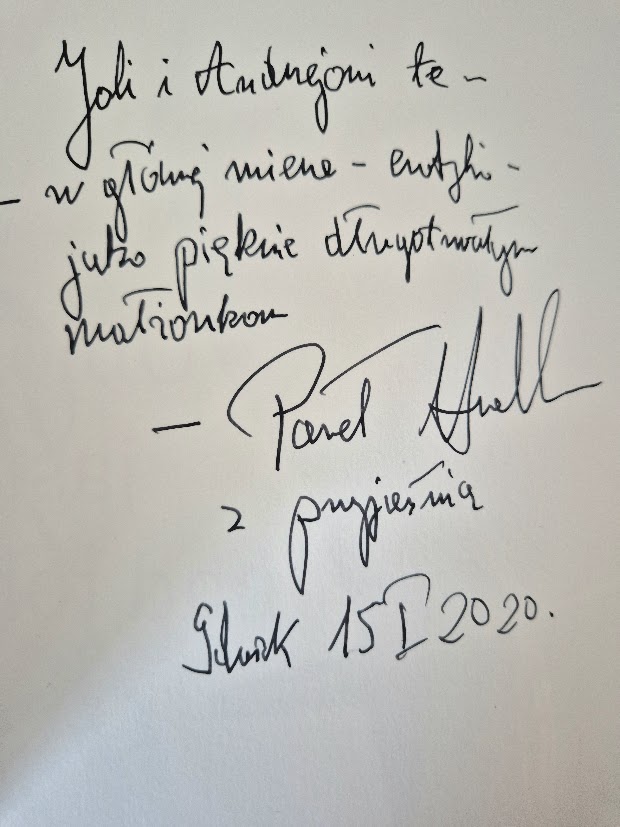 Joli i Andrzejowi tę -
- w głównej mierze - erotykę -
jako pięknie długotrwałym
małżonkom
- Paweł Huelle
z przyjaźnią
Gdańsk 15 I 2020.